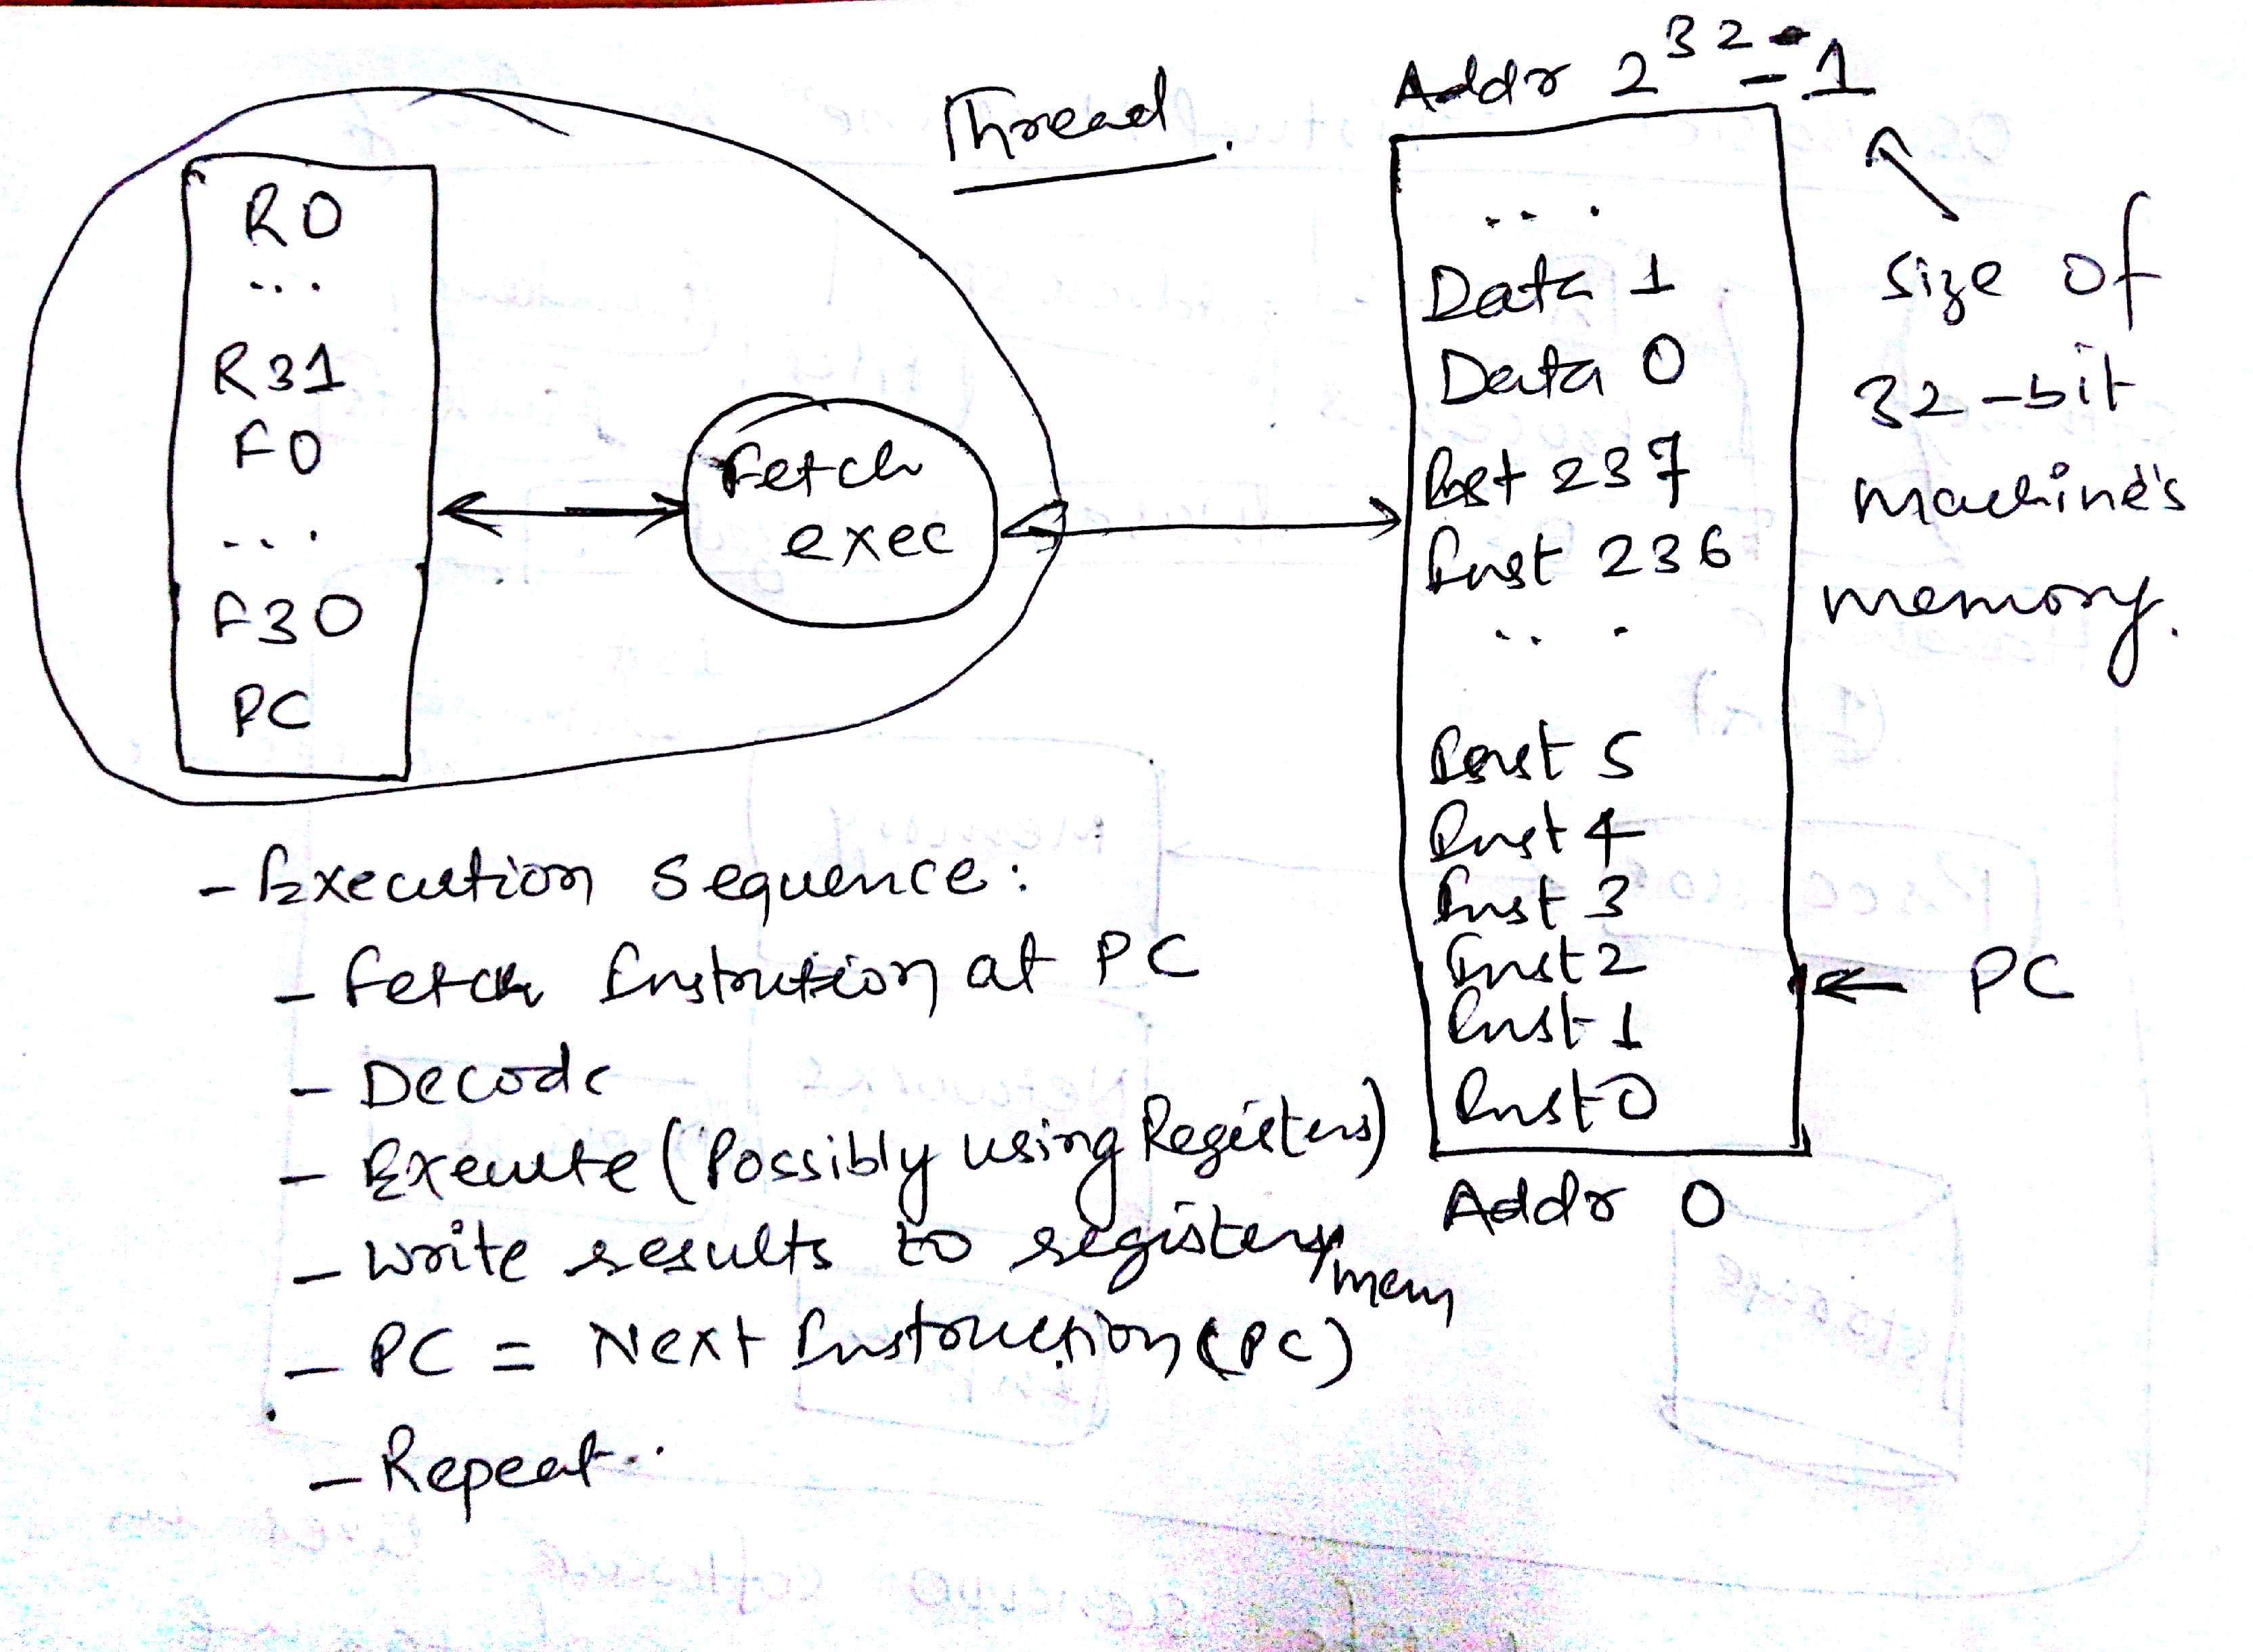 Thread.
R0
...
R31
F0
...
F30
PC
Fetch
exec
Addr 2^32-1
...
Data 1
Data 0
Inst 237
Inst 236
...
Inst 5
Inst 4
Inst 3
Inst 2
Inst 1
Inst 0
Addr 0
size of
32-bit
machine's
memory.
PC
- Execution sequence:
- Fetch Instrution at PC
- Decode
- Execute (Possibly using Registers)
- write results to registers/mem
- PC = Next Instruction (PC)
- Repeat..